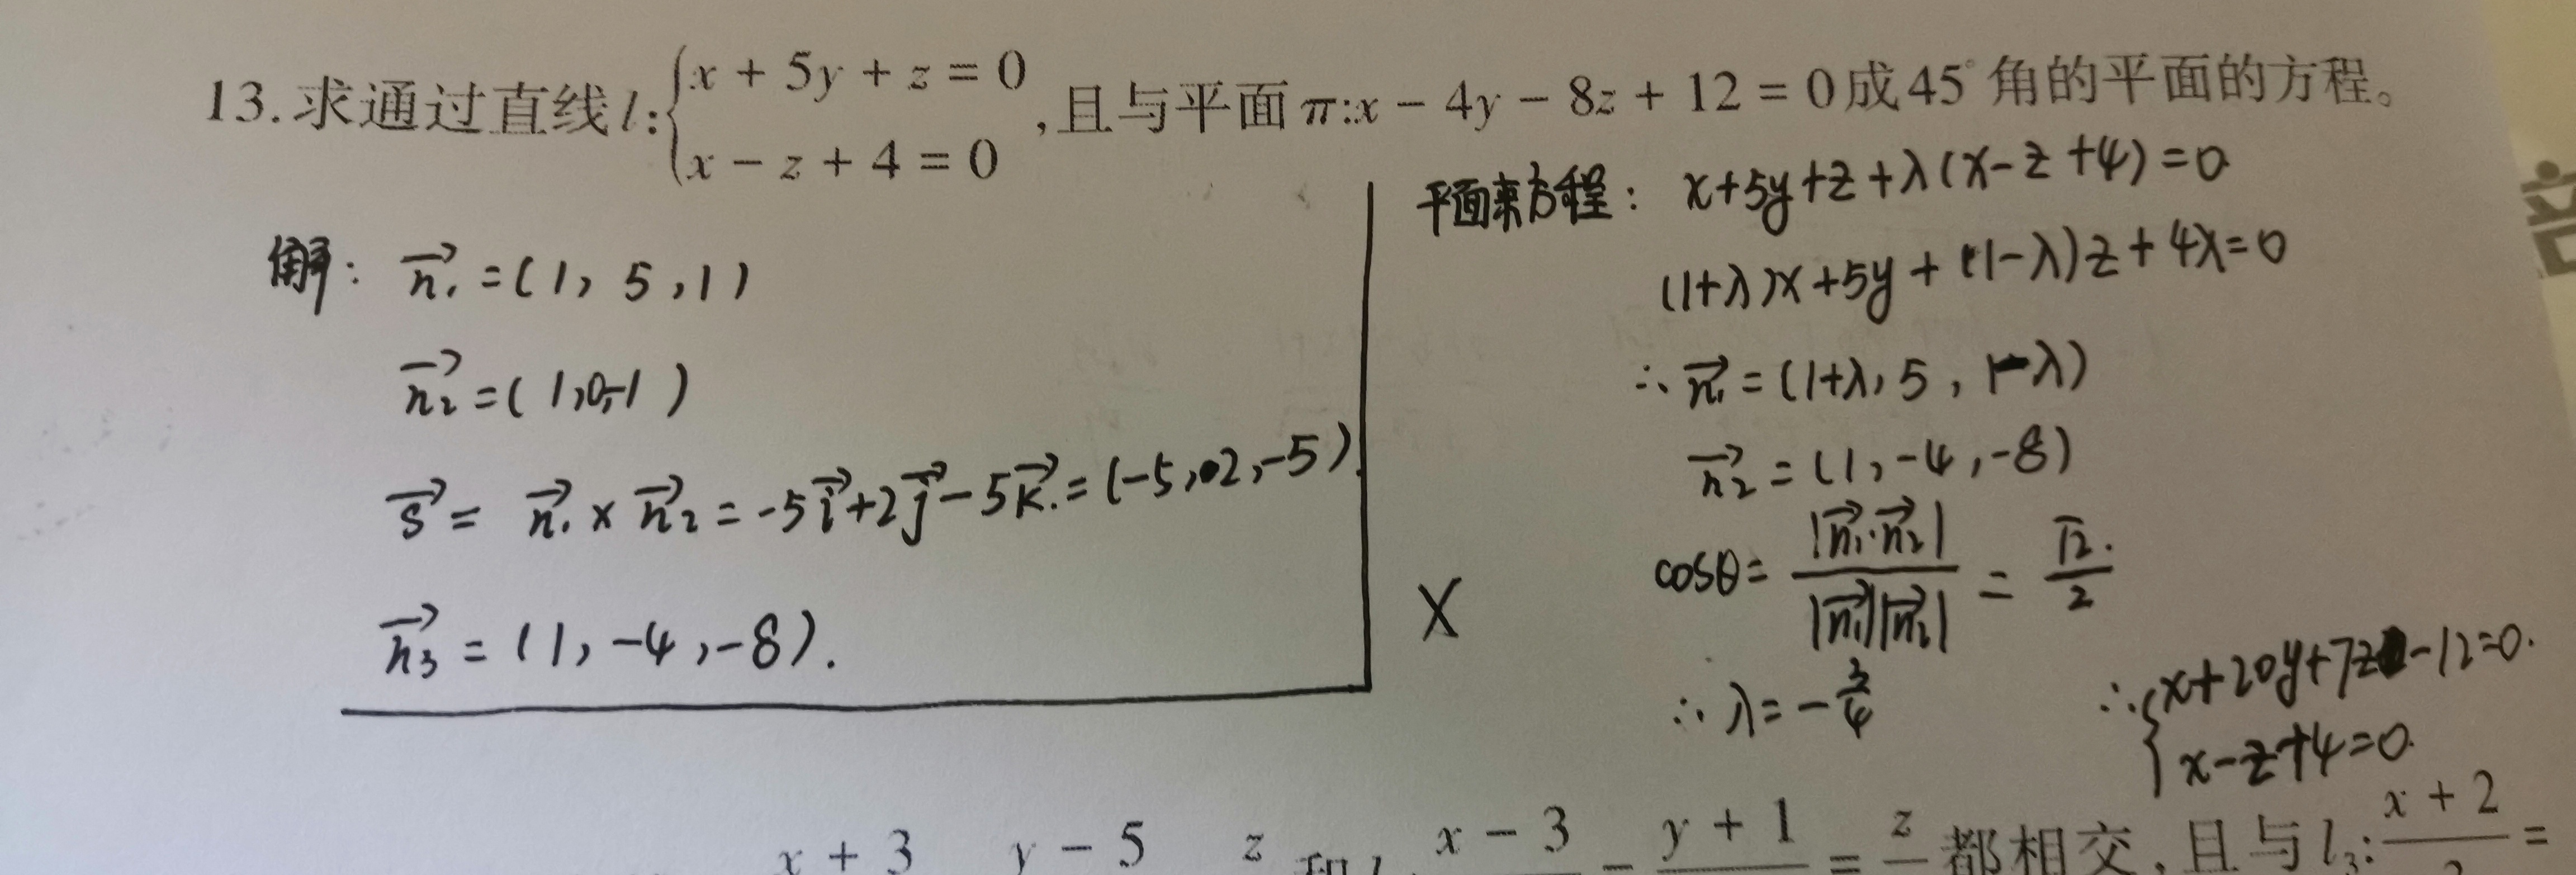 13.求通过直线l:{x + 5y + z = 0, x - z + 4 = 0,且与平面π:x - 4y - 8z + 12 = 0成45°角的平面的方程。
解: n₁⃗ = (1, 5, 1)
n₂⃗ = (1,0,-1)
s⃗ = n₁⃗ × n₂⃗ = -5i⃗+2j⃗-5k⃗. = (-5, 2, -5).
n₃⃗ = (1, -4, -8).
X
平面束方程: x+5y+z+λ(x-z+4)=0
(1+λ)x+5y+(1-λ)z+4λ=0
∴ n₁⃗ = (1+λ, 5, 1-λ)
n₂⃗ = (1, -4, -8)
cosθ = |n₁⃗·n₂⃗| / |n₁⃗||n₂⃗| = √2 / 2.
∴ λ = -3/4
∴ {x+20y+7z-12=0.
x-z+4=0.
x + 3 y - 5 z 和 l x - 3 = y + 1 = z 都相交,且与l₃: x + 2 =